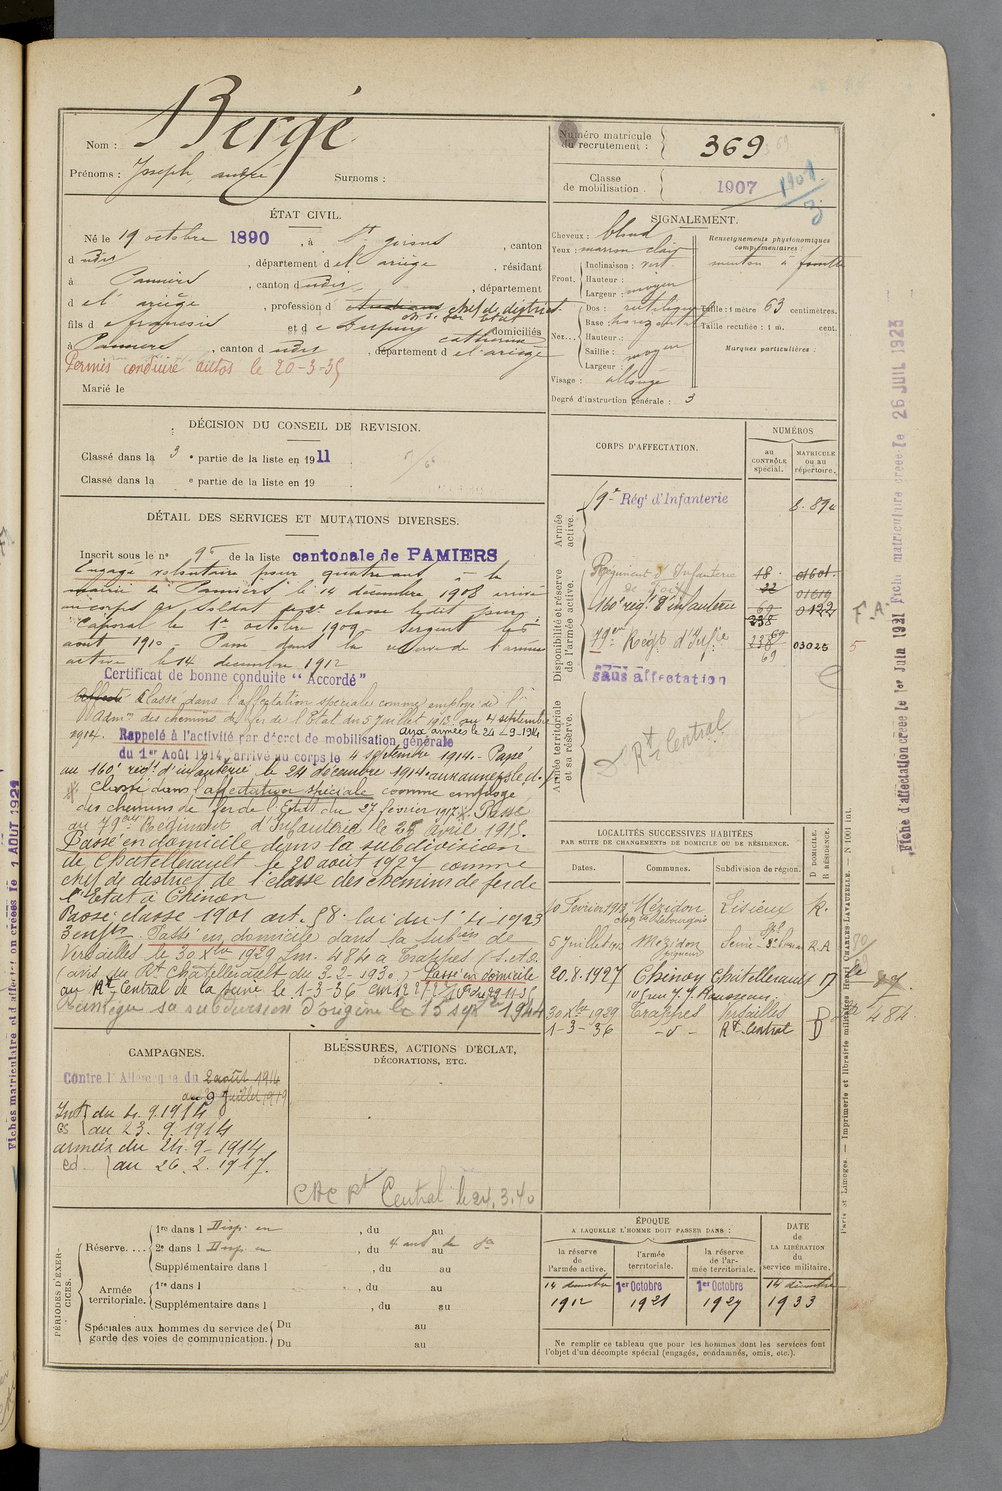 Nom : Bergé
Prénoms : Joseph, andré Surnoms :
Numéro matricule du recrutement : 369
Classe de mobilisation : 1907
1901
3
ÉTAT CIVIL.
Né le 19 octobre 1890, à St girons, canton
d udit, département de l'ariège, résidant
à Pamiers, canton d udit, département
de l'ariège, profession d chef de district
ch. de fer Etat
fils de françois et de domiciliés
catherine
à Pamiers, canton d udit, département de l'ariège
Permis conduire autos le 20-3-35
Marié le
SIGNALEMENT.
Cheveux : blond
Yeux : marron clair
Front. Inclinaison : vert.
Hauteur :
Largeur : moyen
Nez... Dos : rectiligne
Base : horizontal
Hauteur :
Saillie : moyen
Largeur :
Visage : allongé
Degré d'instruction générale : 3
Renseignements physionomiques complémentaires :
menton à fossette
Taille : 1 mètre 63 centimètres.
Taille rectifiée : 1 m. cent.
Marques particulières :
DÉCISION DU CONSEIL DE REVISION.
Classé dans la 3e partie de la liste en 1911
Classé dans la e partie de la liste en 19
DÉTAIL DES SERVICES ET MUTATIONS DIVERSES.
Inscrit sous le n° de la liste cantonale de PAMIERS
Engagé volontaire pour quatre ans à la
mairie de Pamiers le 14 décembre 1908 arrivé
au corps et soldat de 2e classe ledit jour
Caporal le 1er octobre 1909. Sergent le
août 1910. Passé dans la réserve de l'armée
active le 14 décembre 1912
Certificat de bonne conduite "Accordé"
Affecté Classé dans l'affectation spéciale comme employé de l'
Admon des chemins de fer de l'Etat du 5 juillet 1913 au 4 septembre
1914. Rappelé à l'activité par décret de mobilisation générale
aux armées le 24-9-1914
du 1er Août 1914, arrivé au corps le 4 septembre 1914. Passé
au 160e régt d'infanterie le 24 décembre 1914. aux armées le d.
Classé dans l'affectation spéciale comme employé
des chemins de fer de l'Etat du 27 février 1917. Passé
au 79eme Régiment d'Infanterie le 25 avril 1918.
Passé en domicile dans la subdivision
de Chatellerault le 20 août 1927 comme
chef de district de l'classe des chemins de fer de
l'Etat à Chinon
Passé classe 1901 art. 58 loi du 1-4-1923
3 enfts. Passé en domicile dans la subon de
Versailles le 30 Xbre 1929 Lm. 484 à Trappes (S. et O.
(avis du Rt Chatellerault du 3-2-1930) Passé en domicile
au Rt Central de la Seine le 1-3-36
Réintègre sa subdivision d'origine le 15 septbre 1944
CORPS D'AFFECTATION.
NUMÉROS
au CONTRÔLE spécial.
MATRICULE ou au répertoire.
Armée active.
9e Régt d'Infanterie
8.894
Disponibilité et réserve de l'armée active.
Régiment d'Infanterie
de Foix
18
01601
22
01619
160e rég. d'infanterie
69
0122
238
79eme Régt d'Infie
238
69
69
03025
sans affectation
Armée territoriale et sa réserve.
Rt Central
F.A.
5
LOCALITÉS SUCCESSIVES HABITÉES
PAR SUITE DE CHANGEMENTS DE DOMICILE OU DE RÉSIDENCE.
D DOMICILE. R RÉSIDENCE.
Dates. Communes. Subdivision de région.
10 Février 1913 Mézidon Lisieux R.
5 Juillet 1913 Mézidon Seine R.A
20.8.1927 Chinon Chatellerault D
10 rue J. J. Rousseau
30 Xbre 1929 Trappes Versailles D 484
1-3-36 -d- Rt Central
CAMPAGNES.
Contre l'Allemagne du 2 août 1914
au 9 juillet 1919
Int. du 4.9.1914
CS au 23.9.1914
armées du 24.9.1914
CD. au 26.2.1917.
BLESSURES, ACTIONS D'ÉCLAT,
DÉCORATIONS, ETC.
Rt Central le 24.3.40
PÉRIODES D'EXERCICES.
Réserve.... 1re dans l Disp. en, du au
2e dans l Disp. en, du 4 au
Supplémentaire dans l, du au
Armée territoriale. 1re dans l, du au
Supplémentaire dans l, du au
Spéciales aux hommes du service de garde des voies de communication. Du au
Du au
ÉPOQUE
A LAQUELLE L'HOMME DOIT PASSER DANS :
la réserve de l'armée active. l'armée territoriale. la réserve de l'armée territoriale.
DATE DE LA LIBÉRATION du service militaire.
14 décembre 1912
1er Octobre 1921
1er Octobre 1927
14 décembre 1933
Ne remplir ce tableau que pour les hommes dont les services font
l'objet d'un décompte spécial (engagés, condamnés, omis, etc.).
Paris et Limoges. — Imprimerie et librairie militaires Henri CHARLES-LAVAUZELLE. — N° 1001 bis.
Fiche matriculaire créée le 26 JUIL 1923
Fiche d'affectation créée le 1er Juin 1921
Fiches matriculaire et d'affectation créées le 1 AOUT 1921